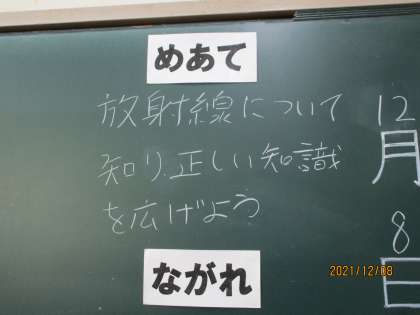 めあて
放射線について
知り、正しい知識
を広げよう
ながれ
12
月
8
日
2021/12/08